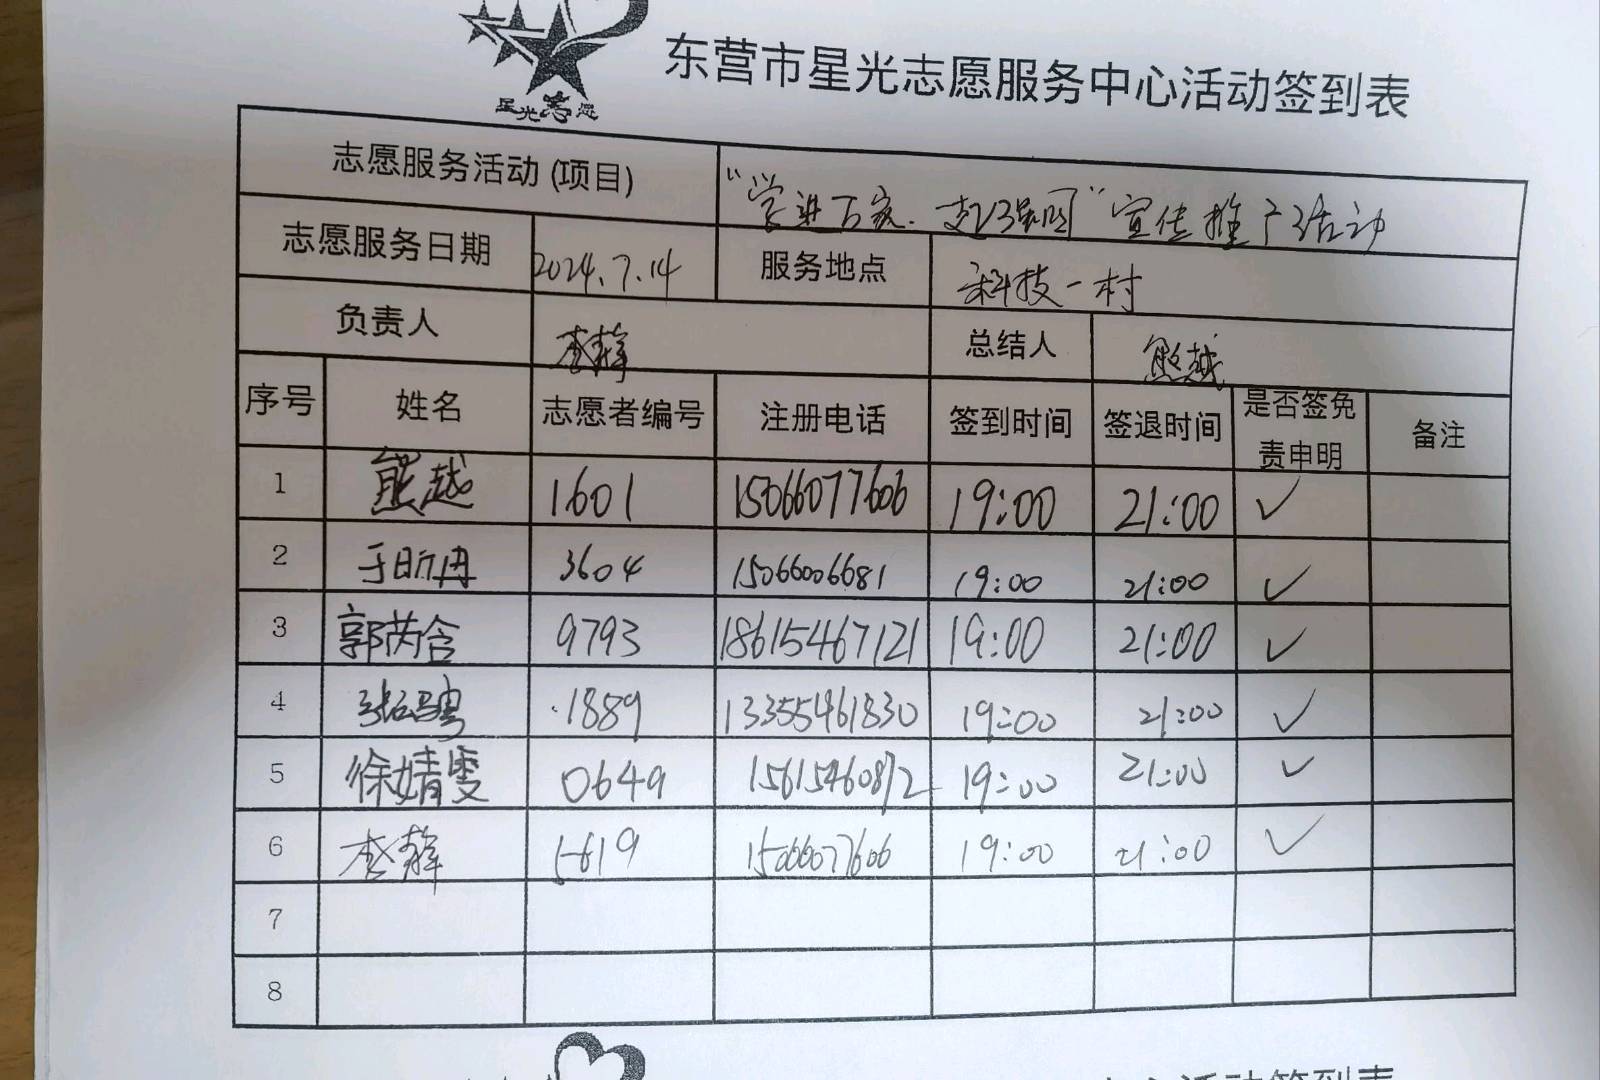 星光志愿
东营市星光志愿服务中心活动签到表
志愿服务活动(项目) "学进万家·赴强国"宣传推广活动
志愿服务日期 2024.7.14 服务地点 科技一村
负责人 李 总结人 熊越
序号 姓名 志愿者编号 注册电话 签到时间 签退时间 是否签免责申明 备注
1 熊越 1601 15066077606 19:00 21:00 ✓
2 于昕冉 3604 15066006681 19:00 21:00 ✓
3 郭芮含 9793 18615467121 19:00 21:00 ✓
4 张骋 1889 13355461830 19:00 21:00 ✓
5 徐婧雯 0649 15615460872 19:00 21:00 ✓
6 李 5619 15066077606 19:00 21:00 ✓
7
8